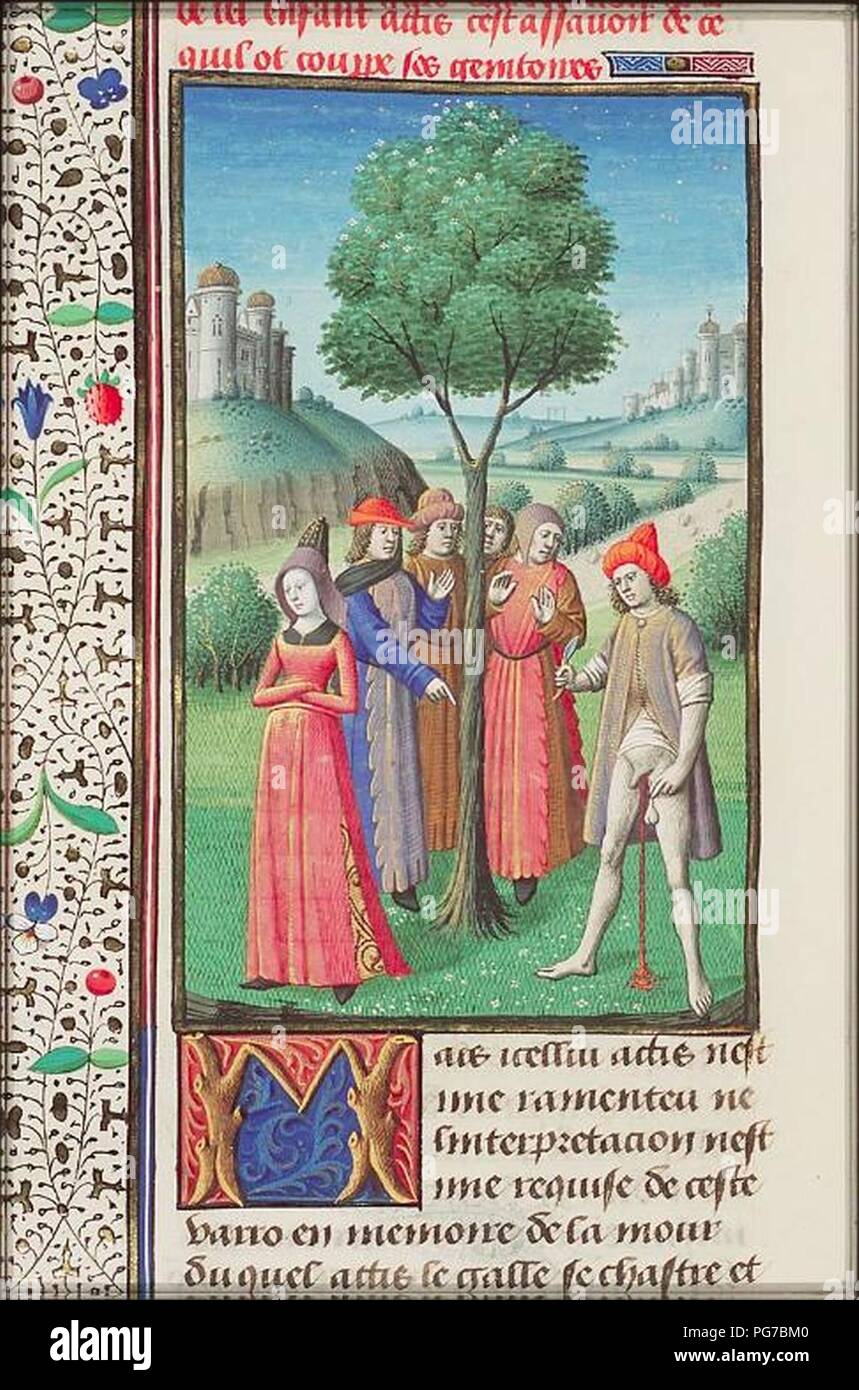 de cel enfant actis cest assavoir de ce
quil ot couppe ses genitoires
Mais icellui actis nest
mie ramenteu ne
linterpretacion nest
mie requise de ceste
varro en memoire de la mour
du quel actis le galle se chastre et
alamy
alamy stock photo
PG7BM0
www.alamy.com